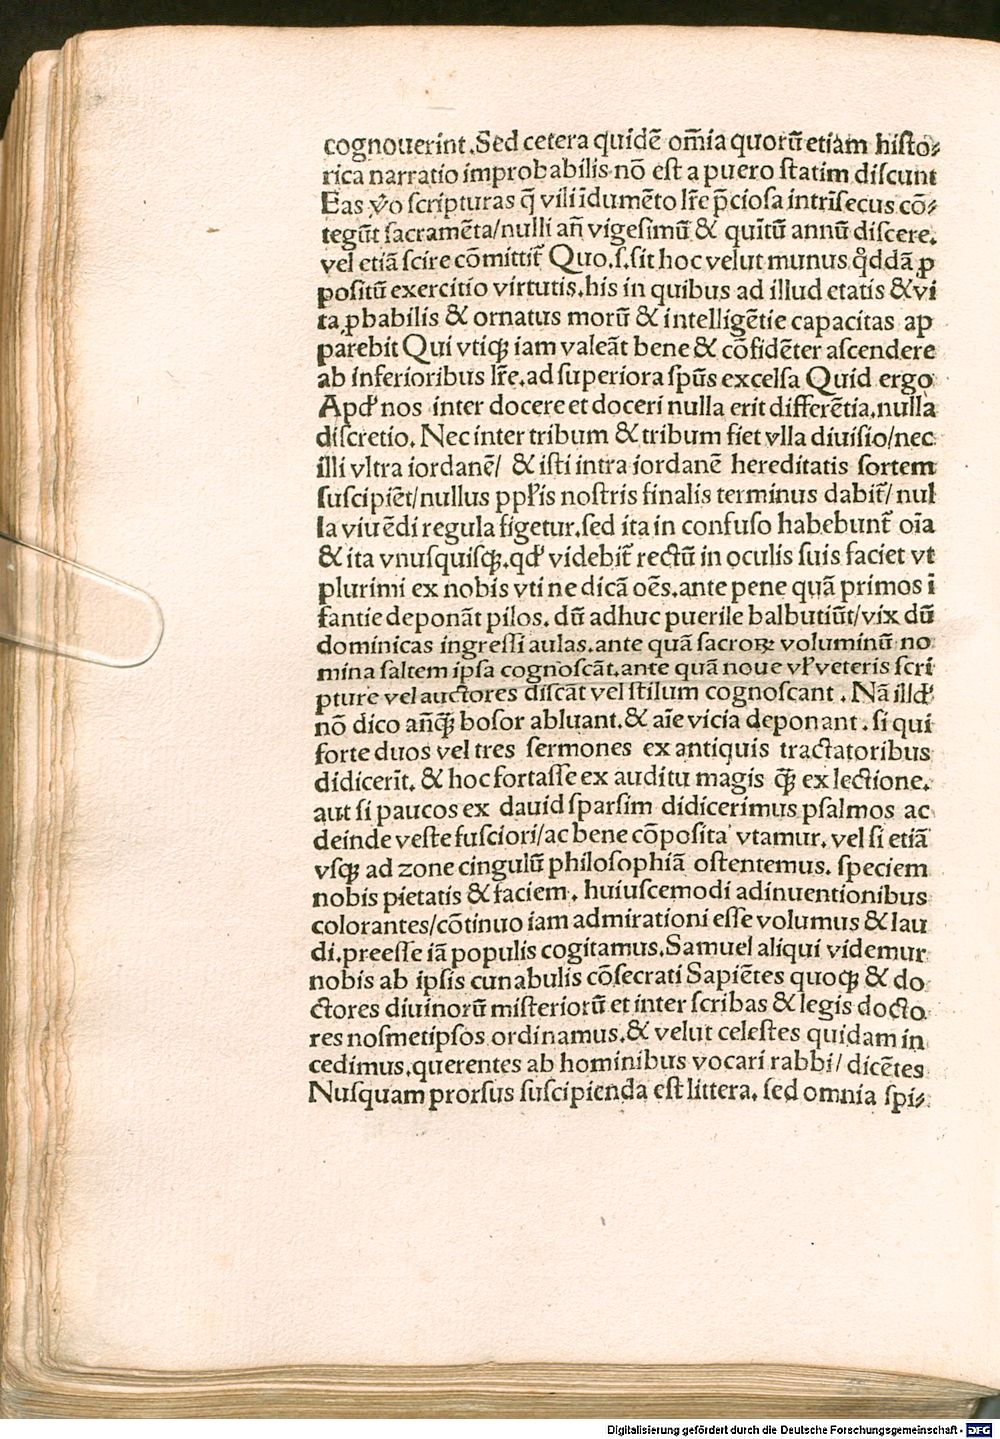 cognouerint. Sed cetera quidē om̄ia quorū etiam histo⸗
rica narratio improbabilis nō est a puero statim discunt
Eas v̄o scripturas q̄ vili īdumēto lr̄e p̄ciosa intrīsecus cō⸗
tegūt sacramēta/nulli an̄ vigesimū & quītū annū discere.
vel etiā scire cōmittit̄ Quo.s.sit hoc velut munus qd̊dā ꝓ
positū exercitio virtutis.his in quibus ad illud etatis & vi
ta ꝓbabilis & ornatus morū & intelligētie capacitas ap
parebit Qui vtiqꝫ iam valeāt bene & cōfidēter ascendere
ab inferioribus lr̄e.ad superiora sp̄us excelsa Quid ergo
Apđ nos inter docere et doceri nulla erit differētia.nulla
discretio. Nec inter tribum & tribum fiet vlla diuisio/nec
illi vltra iordanē/ & isti intra iordanē hereditatis sortem
suscipiēt/nullus ppl̓is nostris finalis terminus dabit̄/ nul
la viuēdi regula figetur.sed ita in confuso habebunt̄ oīa
& ita vnusquisqꝫ.qđ videbit̄ rectū in oculis suis faciet vt
plurimi ex nobis vti ne dicā oēs.ante pene quā primos ī
fantie deponāt pilos. dū adhuc puerile balbutiūt/vix dū
dominicas ingressi aulas.ante quā sacroꝝ voluminū no
mina saltem ipsa cognoscāt.ante quā noue vl̓ veteris scri
pture vel auctores discāt vel stilum cognoscant . Nā illđ
nō dico an̄qꝫ̄ bosor abluant.& aīe vicia deponant . si qui
forte duos vel tres sermones ex antiquis tractatoribus
didicerīt. & hoc fortasse ex auditu magis qꝫ̄ ex lectione.
aut si paucos ex dauid sparsim didicerimus psalmos ac
deinde veste fusciori/ac bene cōposita vtamur. vel si etiā
vsqꝫ ad zone cingulū philosophiā ostentemus. speciem
nobis pietatis & faciem . huiuscemodi adinuentionibus
colorantes/cōtinuo iam admirationi esse volumus & lau
di.preesse iā populis cogitamus. Samuel aliqui videmur
nobis ab ipsis cunabulis cōsecrati Sapiētes quoqꝫ & do
ctores diuinorū misteriorū et inter scribas & legis docto
res nosmetipsos ordinamus.& velut celestes quidam in
cedimus.querentes ab hominibus vocari rabbi/ dicētes
Nusquam prorsus suscipienda est littera. sed omnia spi⸗
Digitalisierung gefördert durch die Deutsche Forschungsgemeinschaft - DFG